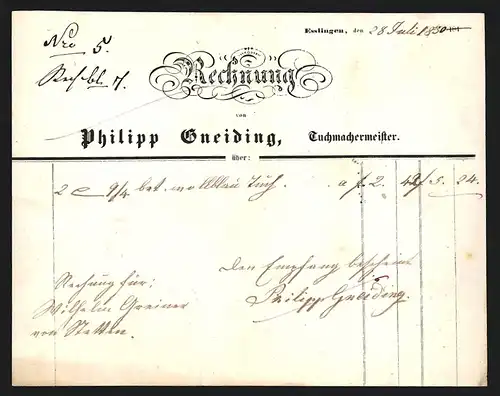 Nro 5.
Esslingen, den 28 Juli 1850
Rechnung
von
Philipp Gneiding, Tuchmachermeister.
über:
2 9/4 blau Tuch. a f. 2. 42 f 5. 24.
Den Empfang bescheint
Philipp Gneiding.
Rechnung für:
Wilhelm Greiner
von Stetten.